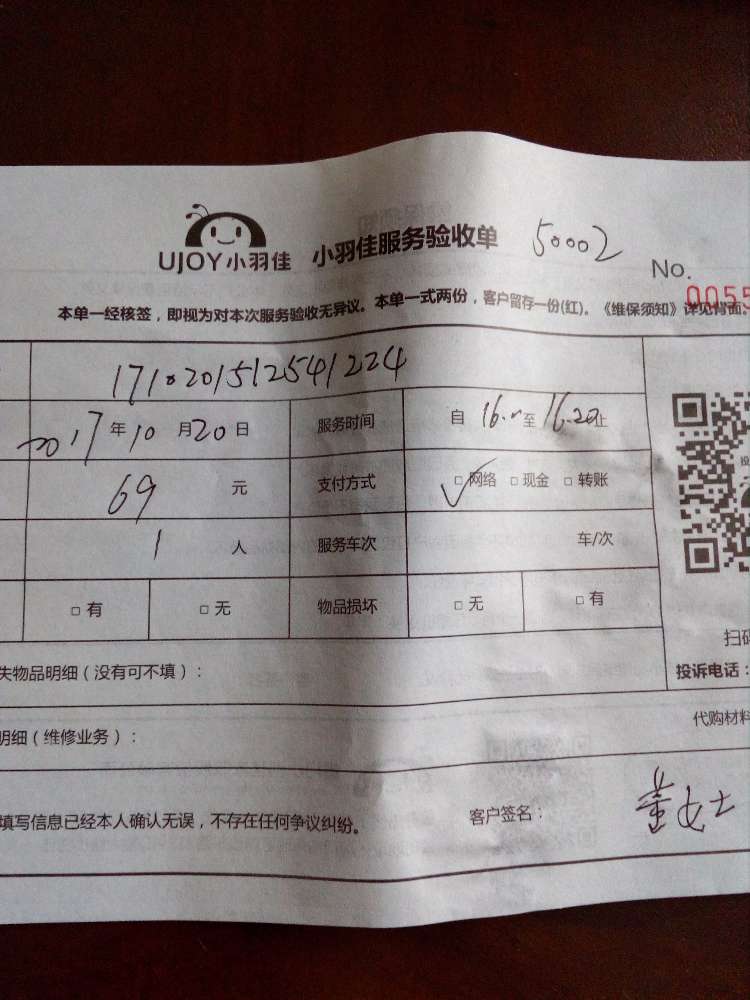 UJOY小羽佳 小羽佳服务验收单 50002 No. 0055
本单一经核签，即视为对本次服务验收无异议。本单一式两份，客户留存一份(红)。《维保须知》详见背面。
1710201512541224
2017年10月20日 服务时间 自 至16.20止
69 元 支付方式 ✓□网络 □现金 □转账
1 人 服务车次 车/次
□有 □无 物品损坏 □无 □有
扫码
失物品明细（没有可不填）： 投诉电话：
明细（维修业务）： 代购材料
填写信息已经本人确认无误，不存在任何争议纠纷。 客户签名： 董女士